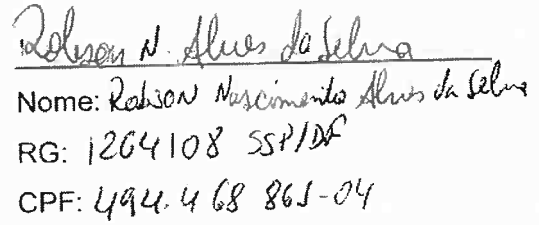 Robson N. Alves da Silva
Nome: Robson Nascimento Alves da Silva
RG: 1264108 SSP/DF
CPF: 494.468 861-04